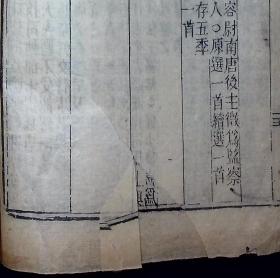 容尉南唐後主徴爲監察
人○原選一首續選一首
存五季
一首